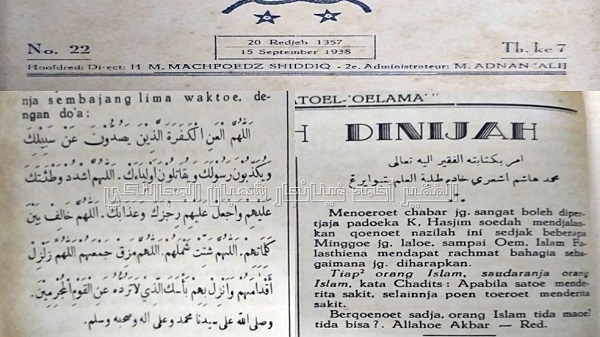 No. 22
20 Redjeb 1357
15 September 1938
Th. ke 7
Hoofdred: Direct: H M. MACHFOEDZ SHIDDIQ - 2e. Administrateur: M. ADNAN 'ALIJ
nja sembajang lima waktoe, de-
ngan do'a:
اَللّٰهُمَّ الْعَنِ الْكَفَرَةَ الَّذِيْنَ يَصُدُّوْنَ عَنْ سَبِيْلِكَ
وَيُكَذِّبُوْنَ رَسُوْلَكَ وَيُقَاتِلُوْنَ اَوْلِيَاءَكَ. اَللّٰهُمَّ اشْدُدْ وَطْئَتَكَ
عَلَيْهِمْ وَاجْعَلْ عَلَيْهِمْ رِجْزَكَ وَعَذَابَكَ. اَللّٰهُمَّ خَالِفْ بَيْنَ
كَلِمَاتِهِمْ. اَللّٰهُمَّ شَتِّتْ شَمْلَهُمْ. اَللّٰهُمَّ مَزِّقْ جَمْعَهُمْ اَللّٰهُمَّ زَلْزِلْ
اَقْدَامَهُمْ وَاَنْزِلْ بِهِمْ بَأْسَكَ الَّذِيْ لَا تَرُدُّهُ عَنِ الْقَوْمِ الْمُجْرِمِيْنَ.
وصلى الله على سيدنا محمد وعلى اله وصحبه وسلم.
ATOEL-'OELAMA'"
H DINIJAH
امر بكتابته الفقير اليه تعالى
محمد هاشم اشعري خادم طلبة العلم بتبوايرغ
Menoeroet chabar jg. sangat boleh diper-
tjaja padoeka K. Hasjim soedah mendjalan-
kan qoenoet nazilah ini sedjak beberapa
Minggoe jg. laloe, sampai Oem. Islam Fa-
lasthiena mendapat rachmat bahagia seba-
gaimana jg. diharapkan.
Tiap² orang Islam, saudaranja orang
Islam, kata Chadits : Apabila satoe mende-
rita sakit, selainnja poen toeroet menderita
sakit.
Berqoenoet sadja, orang Islam tida mace?
tida bisa ?. Allahoe Akbar — Red.